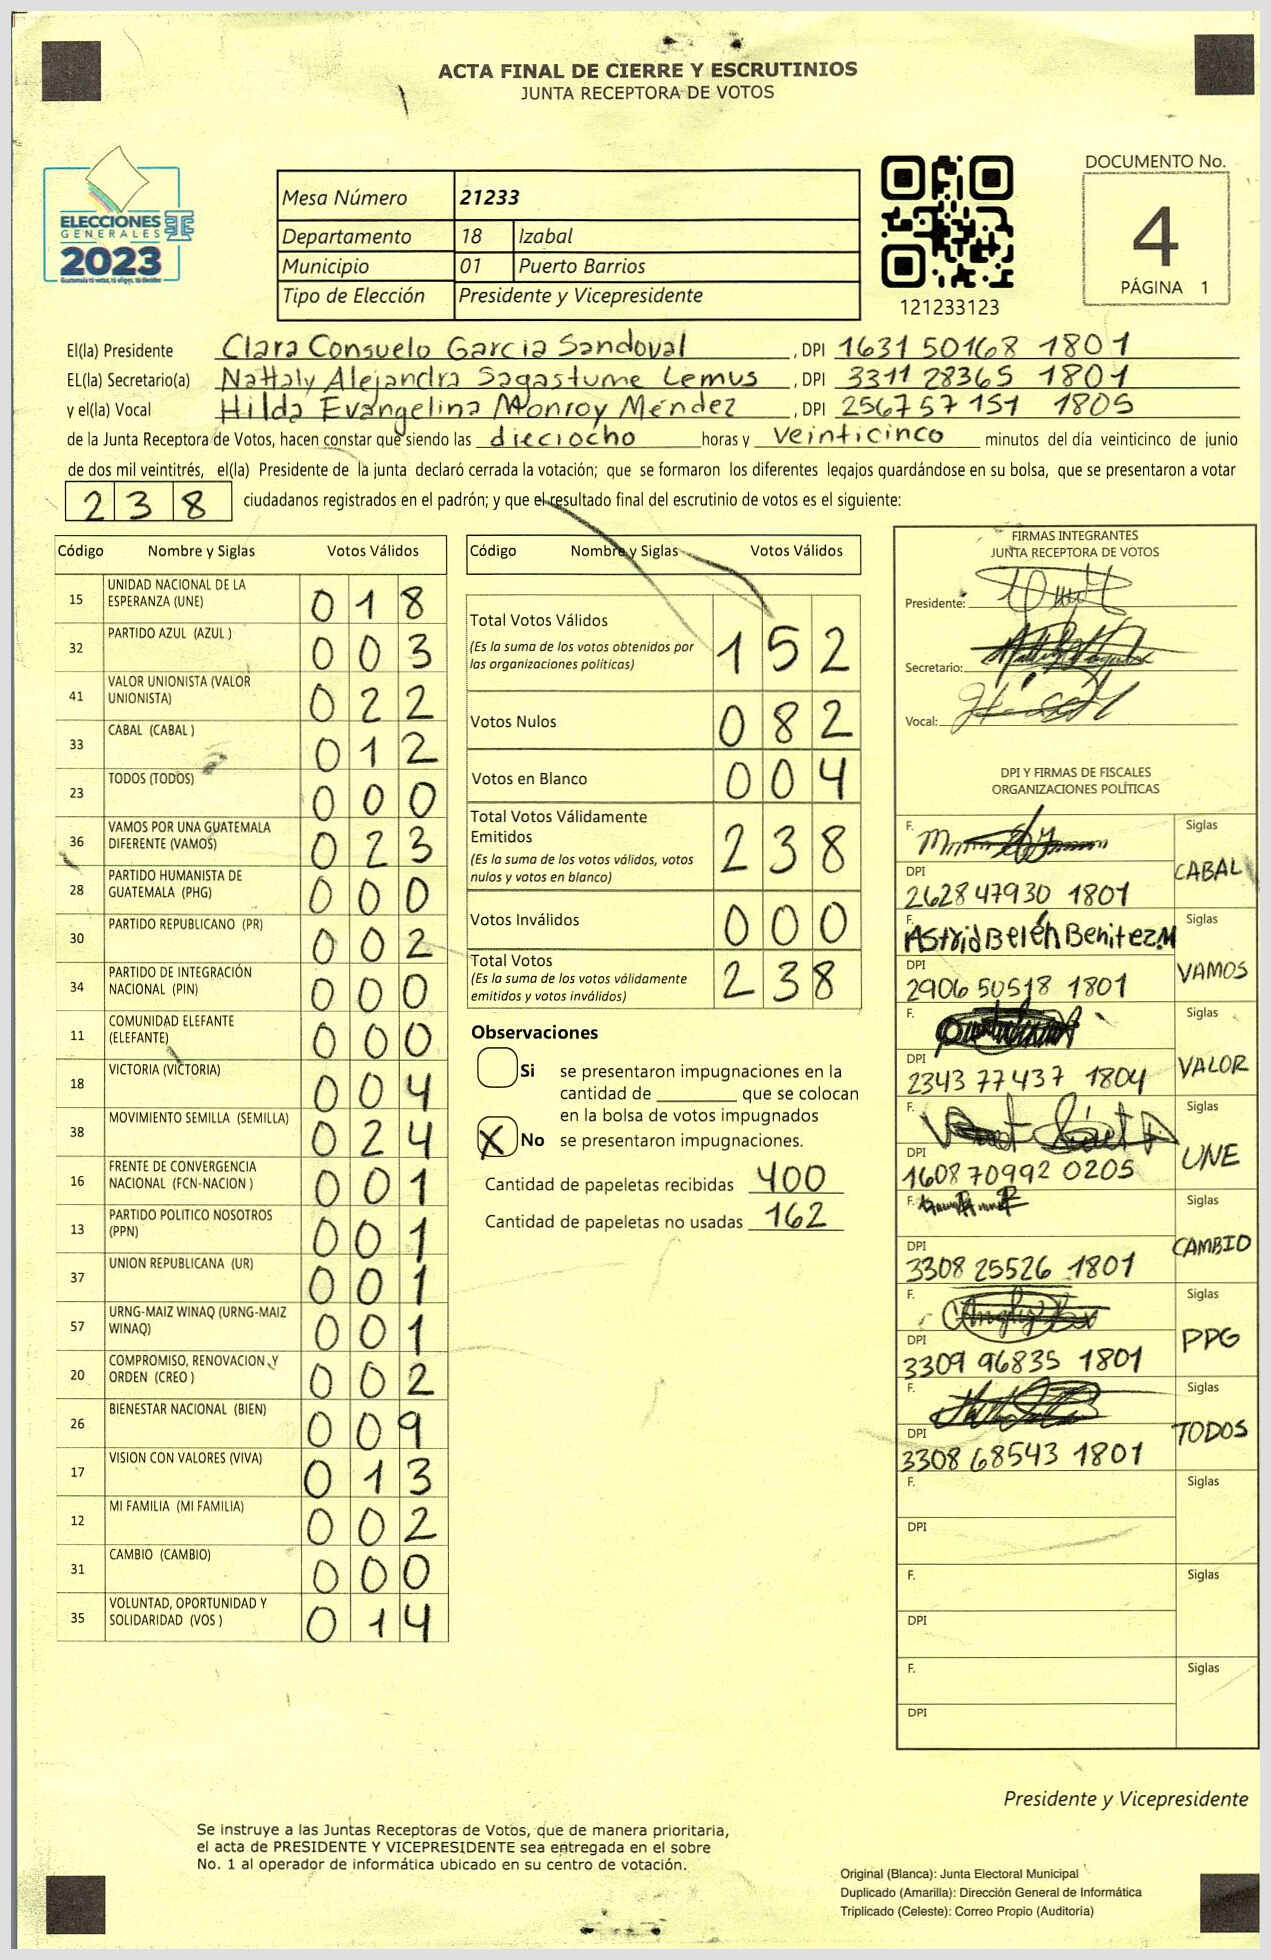 ACTA FINAL DE CIERRE Y ESCRUTINIOS
JUNTA RECEPTORA DE VOTOS
ELECCIONES
GENERALES
2023
Mesa Número 21233
Departamento 18 Izabal
Municipio 01 Puerto Barrios
Tipo de Elección Presidente y Vicepresidente
121233123
DOCUMENTO No.
4
PÁGINA 1
El(la) Presidente Clara Consuelo Garcia Sandoval , DPI 1631 50168 1801
EL(la) Secretario(a) Nattaly Alejandra Sagastume Lemus , DPI 3311 28365 1801
y el(la) Vocal Hilda Evangelina Monroy Méndez , DPI 2567 57 151 1805
de la Junta Receptora de Votos, hacen constar que siendo las dieciocho horas y veinticinco minutos del día veinticinco de junio
de dos mil veintitrés, el(la) Presidente de la junta declaró cerrada la votación; que se formaron los diferentes legajos guardándose en su bolsa, que se presentaron a votar
238 ciudadanos registrados en el padrón; y que el resultado final del escrutinio de votos es el siguiente:
Código Nombre y Siglas Votos Válidos
15 UNIDAD NACIONAL DE LA ESPERANZA (UNE) 018
32 PARTIDO AZUL (AZUL ) 003
41 VALOR UNIONISTA (VALOR UNIONISTA) 022
33 CABAL (CABAL ) 012
23 TODOS (TODOS) 000
36 VAMOS POR UNA GUATEMALA DIFERENTE (VAMOS) 023
28 PARTIDO HUMANISTA DE GUATEMALA (PHG) 000
30 PARTIDO REPUBLICANO (PR) 002
34 PARTIDO DE INTEGRACIÓN NACIONAL (PIN) 000
11 COMUNIDAD ELEFANTE (ELEFANTE) 000
18 VICTORIA (VICTORIA) 004
38 MOVIMIENTO SEMILLA (SEMILLA) 024
16 FRENTE DE CONVERGENCIA NACIONAL (FCN-NACION ) 001
13 PARTIDO POLITICO NOSOTROS (PPN) 001
37 UNION REPUBLICANA (UR) 001
57 URNG-MAIZ WINAQ (URNG-MAIZ WINAQ) 001
20 COMPROMISO, RENOVACION Y ORDEN (CREO ) 002
26 BIENESTAR NACIONAL (BIEN) 009
17 VISION CON VALORES (VIVA) 013
12 MI FAMILIA (MI FAMILIA) 002
31 CAMBIO (CAMBIO) 000
35 VOLUNTAD, OPORTUNIDAD Y SOLIDARIDAD (VOS ) 014
Código Nombre y Siglas Votos Válidos
Total Votos Válidos 152
(Es la suma de los votos obtenidos por
las organizaciones politicas)
Votos Nulos 082
Votos en Blanco 004
Total Votos Válidamente
Emitidos 238
(Es la suma de los votos válidos, votos
nulos y votos en blanco)
Votos Inválidos 000
Total Votos 238
(Es la suma de los votos válidamente
emitidos y votos inválidos)
Observaciones
Si se presentaron impugnaciones en la
cantidad de ________ que se colocan
en la bolsa de votos impugnados
X No se presentaron impugnaciones.
Cantidad de papeletas recibidas 400
Cantidad de papeletas no usadas 162
FIRMAS INTEGRANTES
JUNTA RECEPTORA DE VOTOS
Presidente:
Secretario:
Vocal:
DPI Y FIRMAS DE FISCALES
ORGANIZACIONES POLÍTICAS
F. Siglas
DPI CABAL
2628 47930 1801
F. Astrid Belén Benitez.M Siglas
DPI VAMOS
2906 50518 1801
F. Siglas
DPI VALOR
2343 77437 1804
F. Siglas
DPI UNE
1608 70992 0205
F. Siglas
DPI CAMBIO
3308 25526 1801
F. Siglas
DPI PPG
3309 96835 1801
F. Siglas
DPI TODOS
3308 68543 1801
F. Siglas
DPI
F. Siglas
DPI
F. Siglas
DPI
Presidente y Vicepresidente
Se instruye a las Juntas Receptoras de Votos, que de manera prioritaria,
el acta de PRESIDENTE Y VICEPRESIDENTE sea entregada en el sobre
No. 1 al operador de informática ubicado en su centro de votación.
Original (Blanca): Junta Electoral Municipal
Duplicado (Amarilla): Dirección General de Informática
Triplicado (Celeste): Correo Propio (Auditoría)